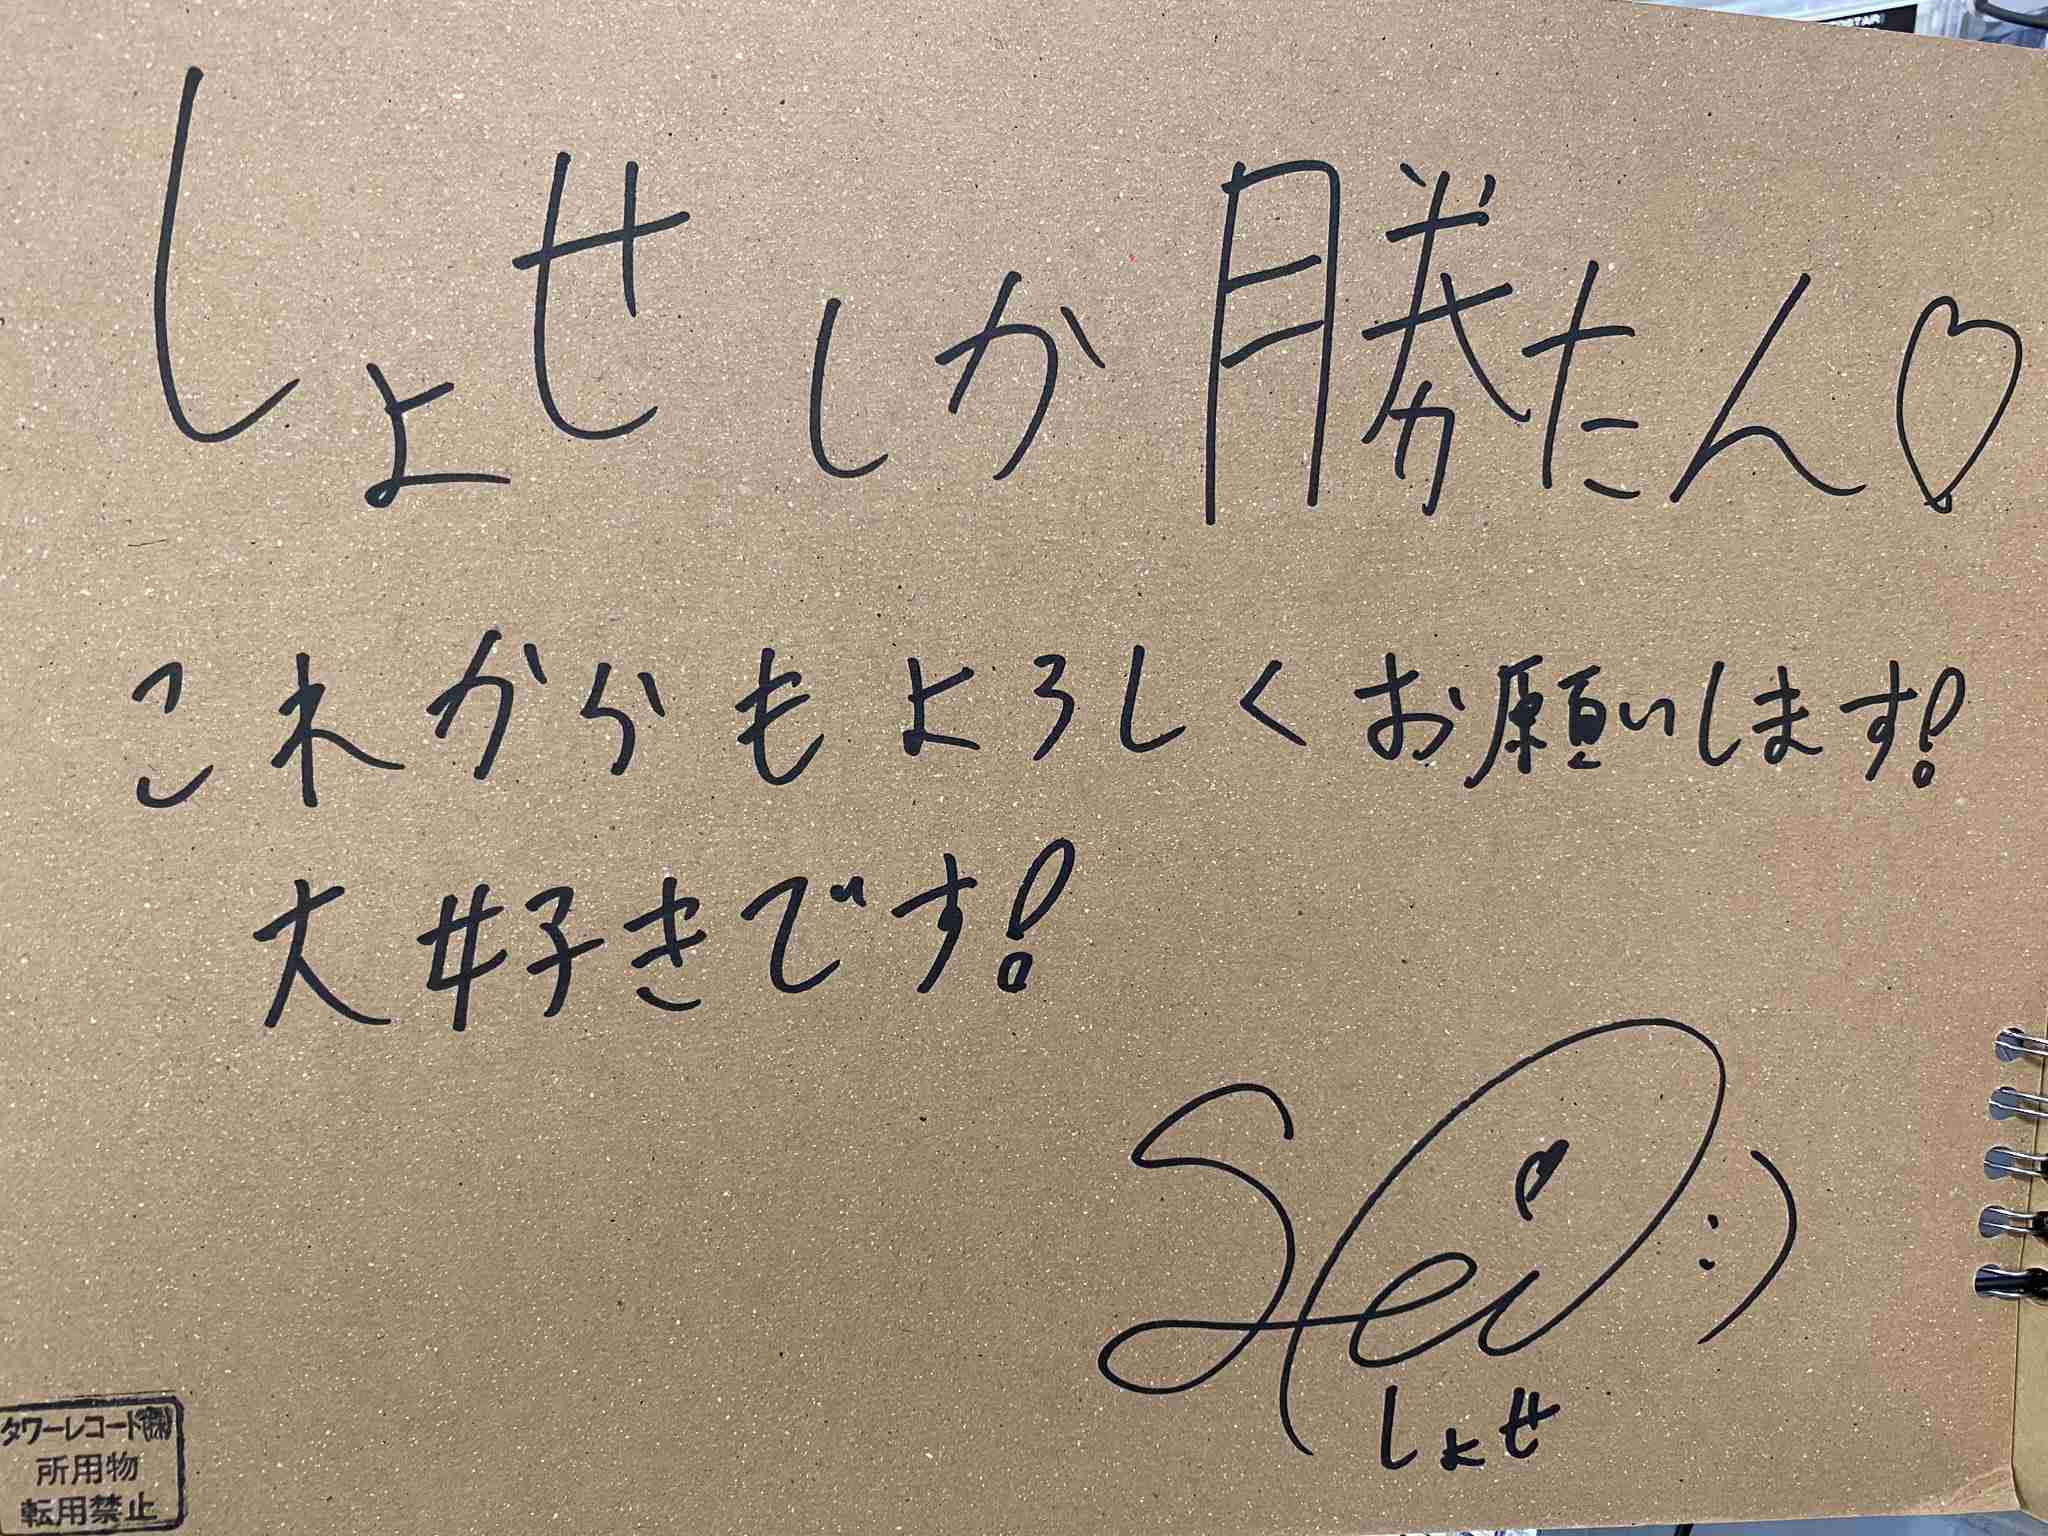 しょせしか勝たん♡
これからもよろしくお願いします!
大好きです!
:)
しょせ
タワーレコード㈱
所用物
転用禁止